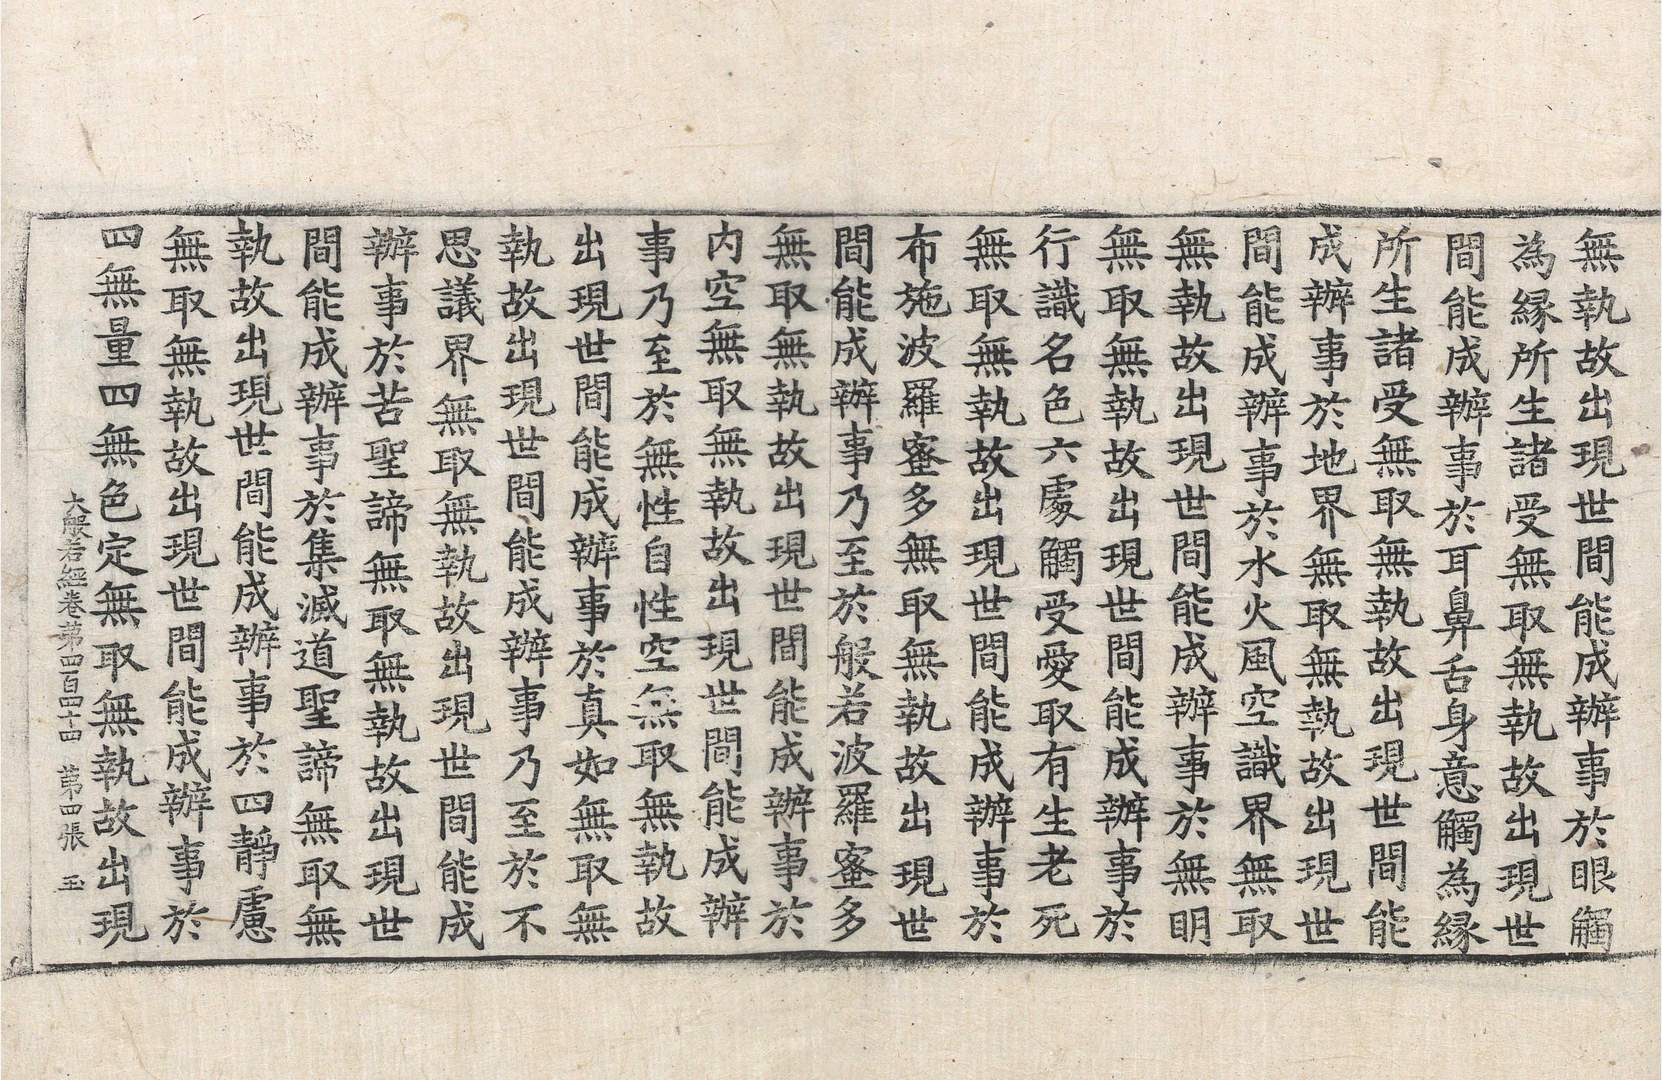 無執故出現世間能成辦事於眼觸
為緣所生諸受無取無執故出現世
間能成辦事於耳鼻舌身意觸為緣
所生諸受無取無執故出現世間能
成辦事於地界無取無執故出現世
間能成辦事於水火風空識界無取
無執故出現世間能成辦事於無明
無取無執故出現世間能成辦事於
行識名色六處觸受愛取有生老死
無取無執故出現世間能成辦事於
布施波羅蜜多無取無執故出現世
間能成辦事乃至於般若波羅蜜多
無取無執故出現世間能成辦事於
內空無取無執故出現世間能成辦
事乃至於無性自性空無取無執故
出現世間能成辦事於真如無取無
執故出現世間能成辦事乃至於不
思議界無取無執故出現世間能成
辦事於苦聖諦無取無執故出現世
間能成辦事於集滅道聖諦無取無
執故出現世間能成辦事於四靜慮
無取無執故出現世間能成辦事於
四無量四無色定無取無執故出現
大般若經卷第四百四十四 第四張 玉